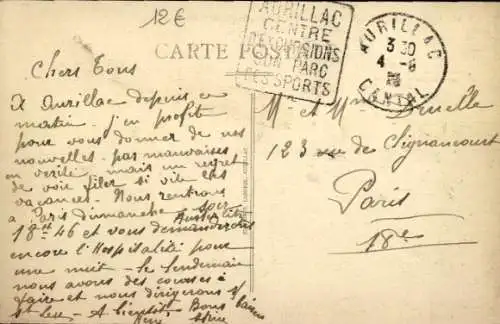 12€
AURILLAC
CENTRE
D'EXCURSIONS
SON PARC
LES SPORTS
AURILLAC
3 30
4 - 8
CANTAL
CARTE POSTALE
Chers Tous
A Aurillac depuis ce
matin. j'en profit
pour vous donner de nos
nouvelles. pas mauvaises
en verité mais un regret
de voir filer si vite les
vacances. Nous rentrons
à Paris dimanche soir
18h 46 et vous demanderons
encore l'Hospitalité pour
une nuit - le lendemain
nous avons des courses à
faire et nous dirigerons
St Leu - A bientôt Bons Baisers
Mr et Mme
123 rue de Clignancourt
Paris
18e